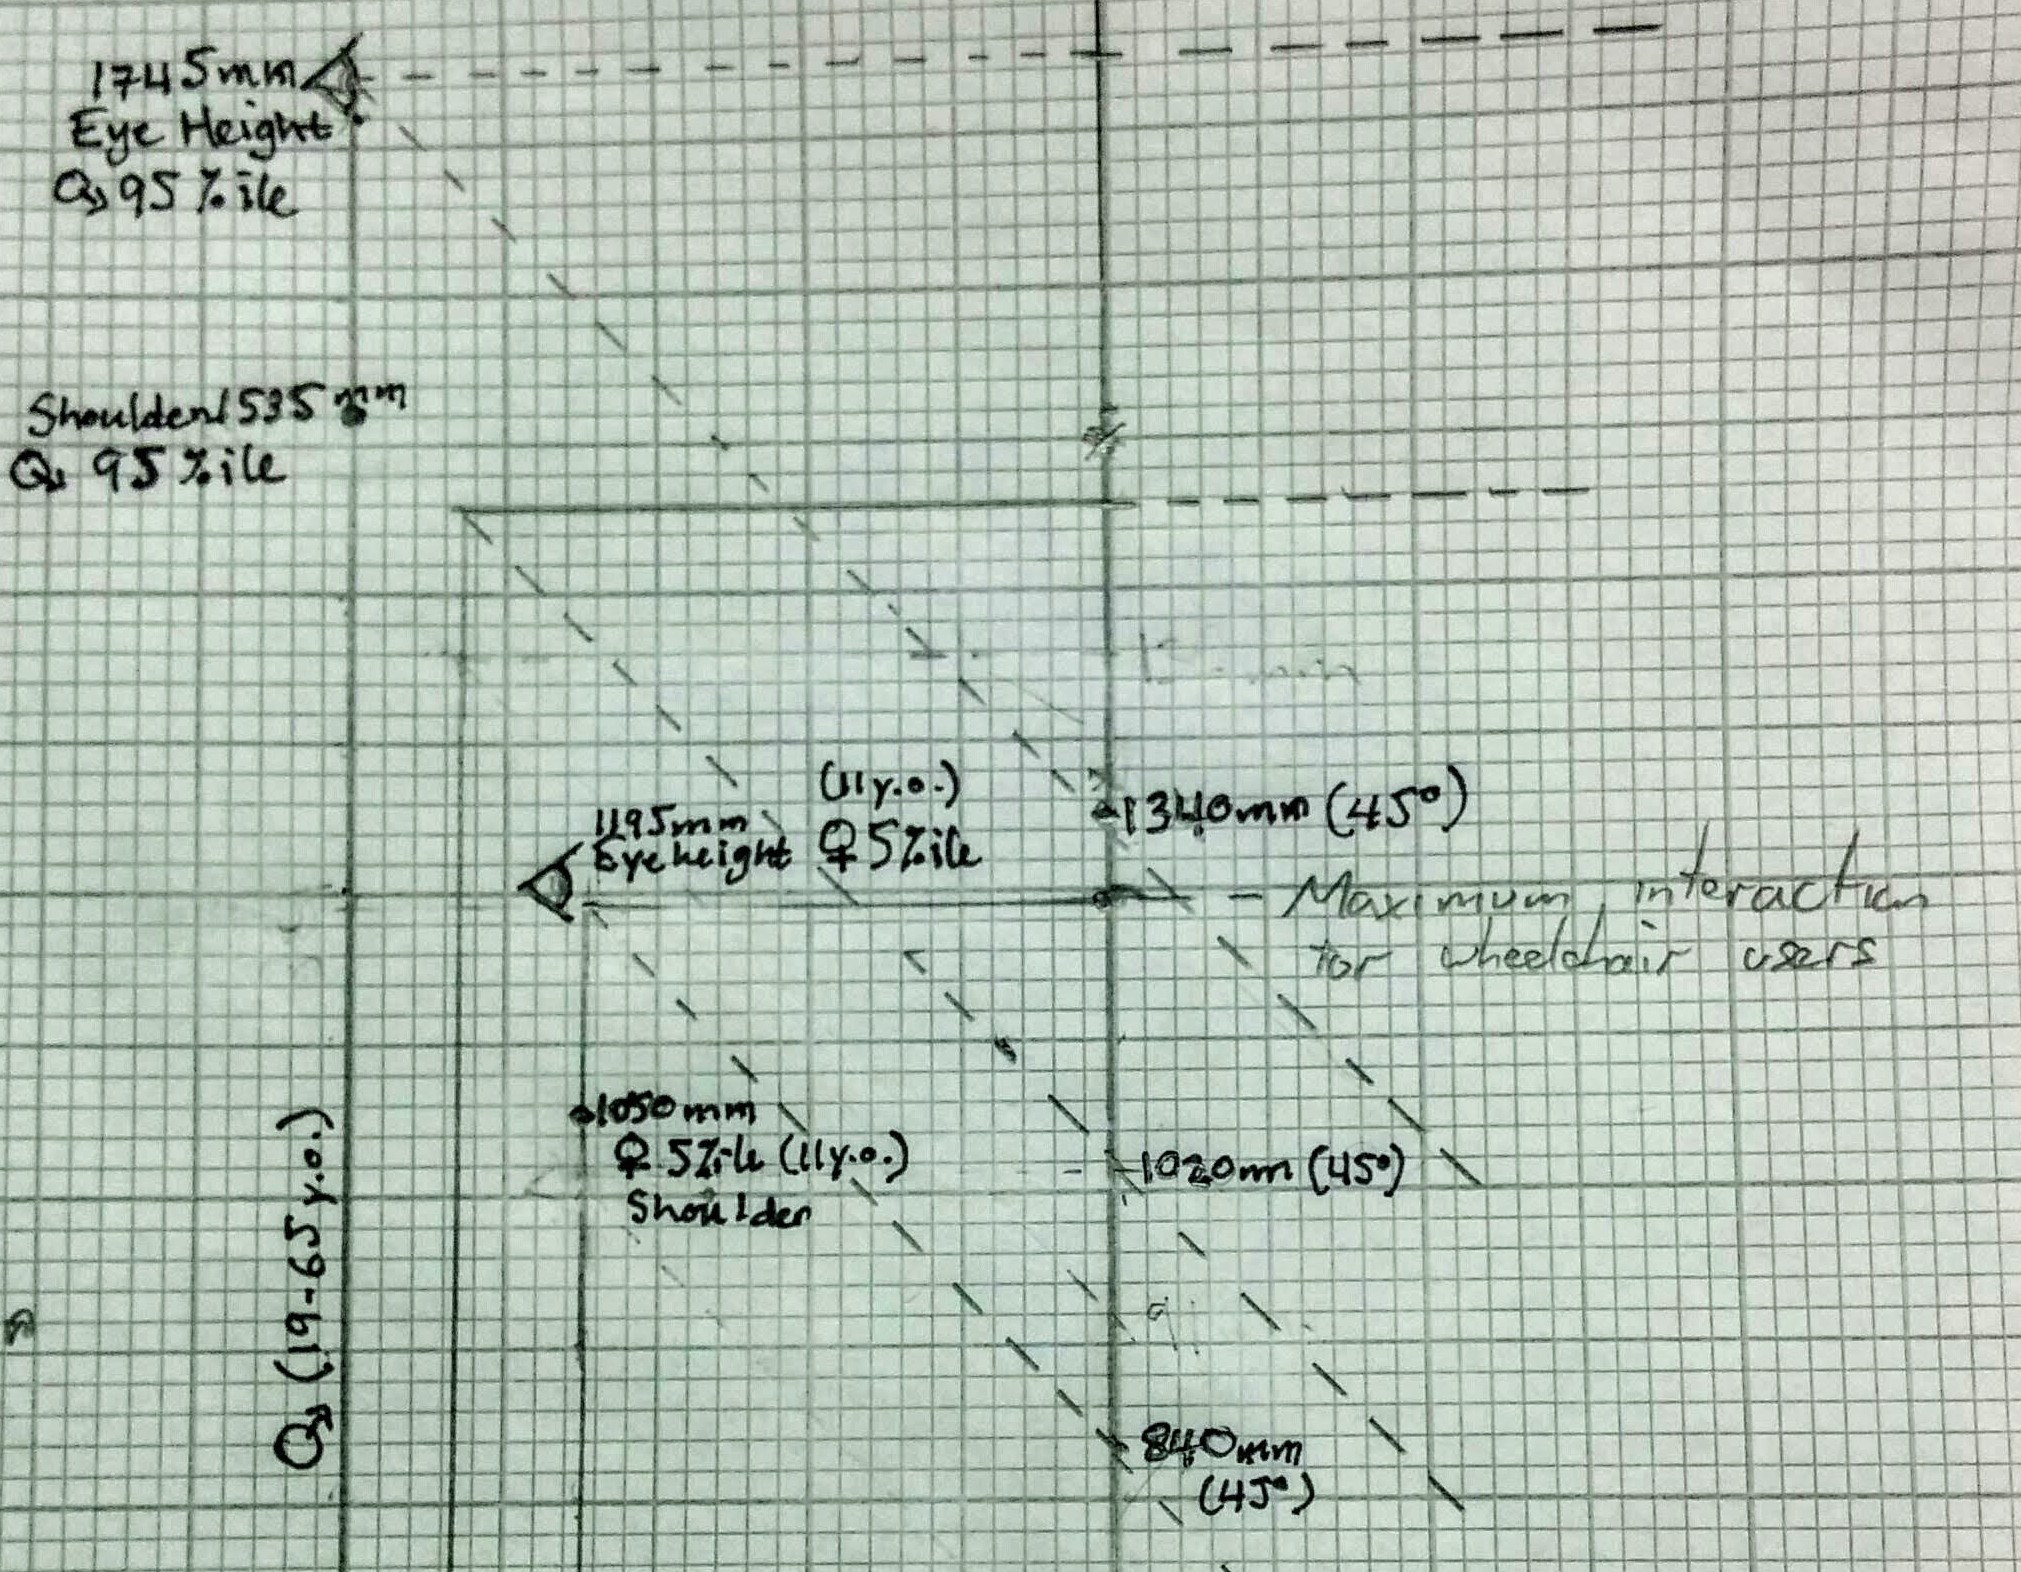 1745mm
Eye Height
♂ 95 %ile
Shoulder 1535 mm
♂ 95 %ile
(11 y.o.)
1195mm
Eye height ♀ 5%ile
1340mm (45°)
- Maximum interaction
for wheelchair users
1050mm
♀ 5%ile (11y.o.)
Shoulder
1020mm (45°)
♂ (19-65 y.o.)
840mm
(45°)